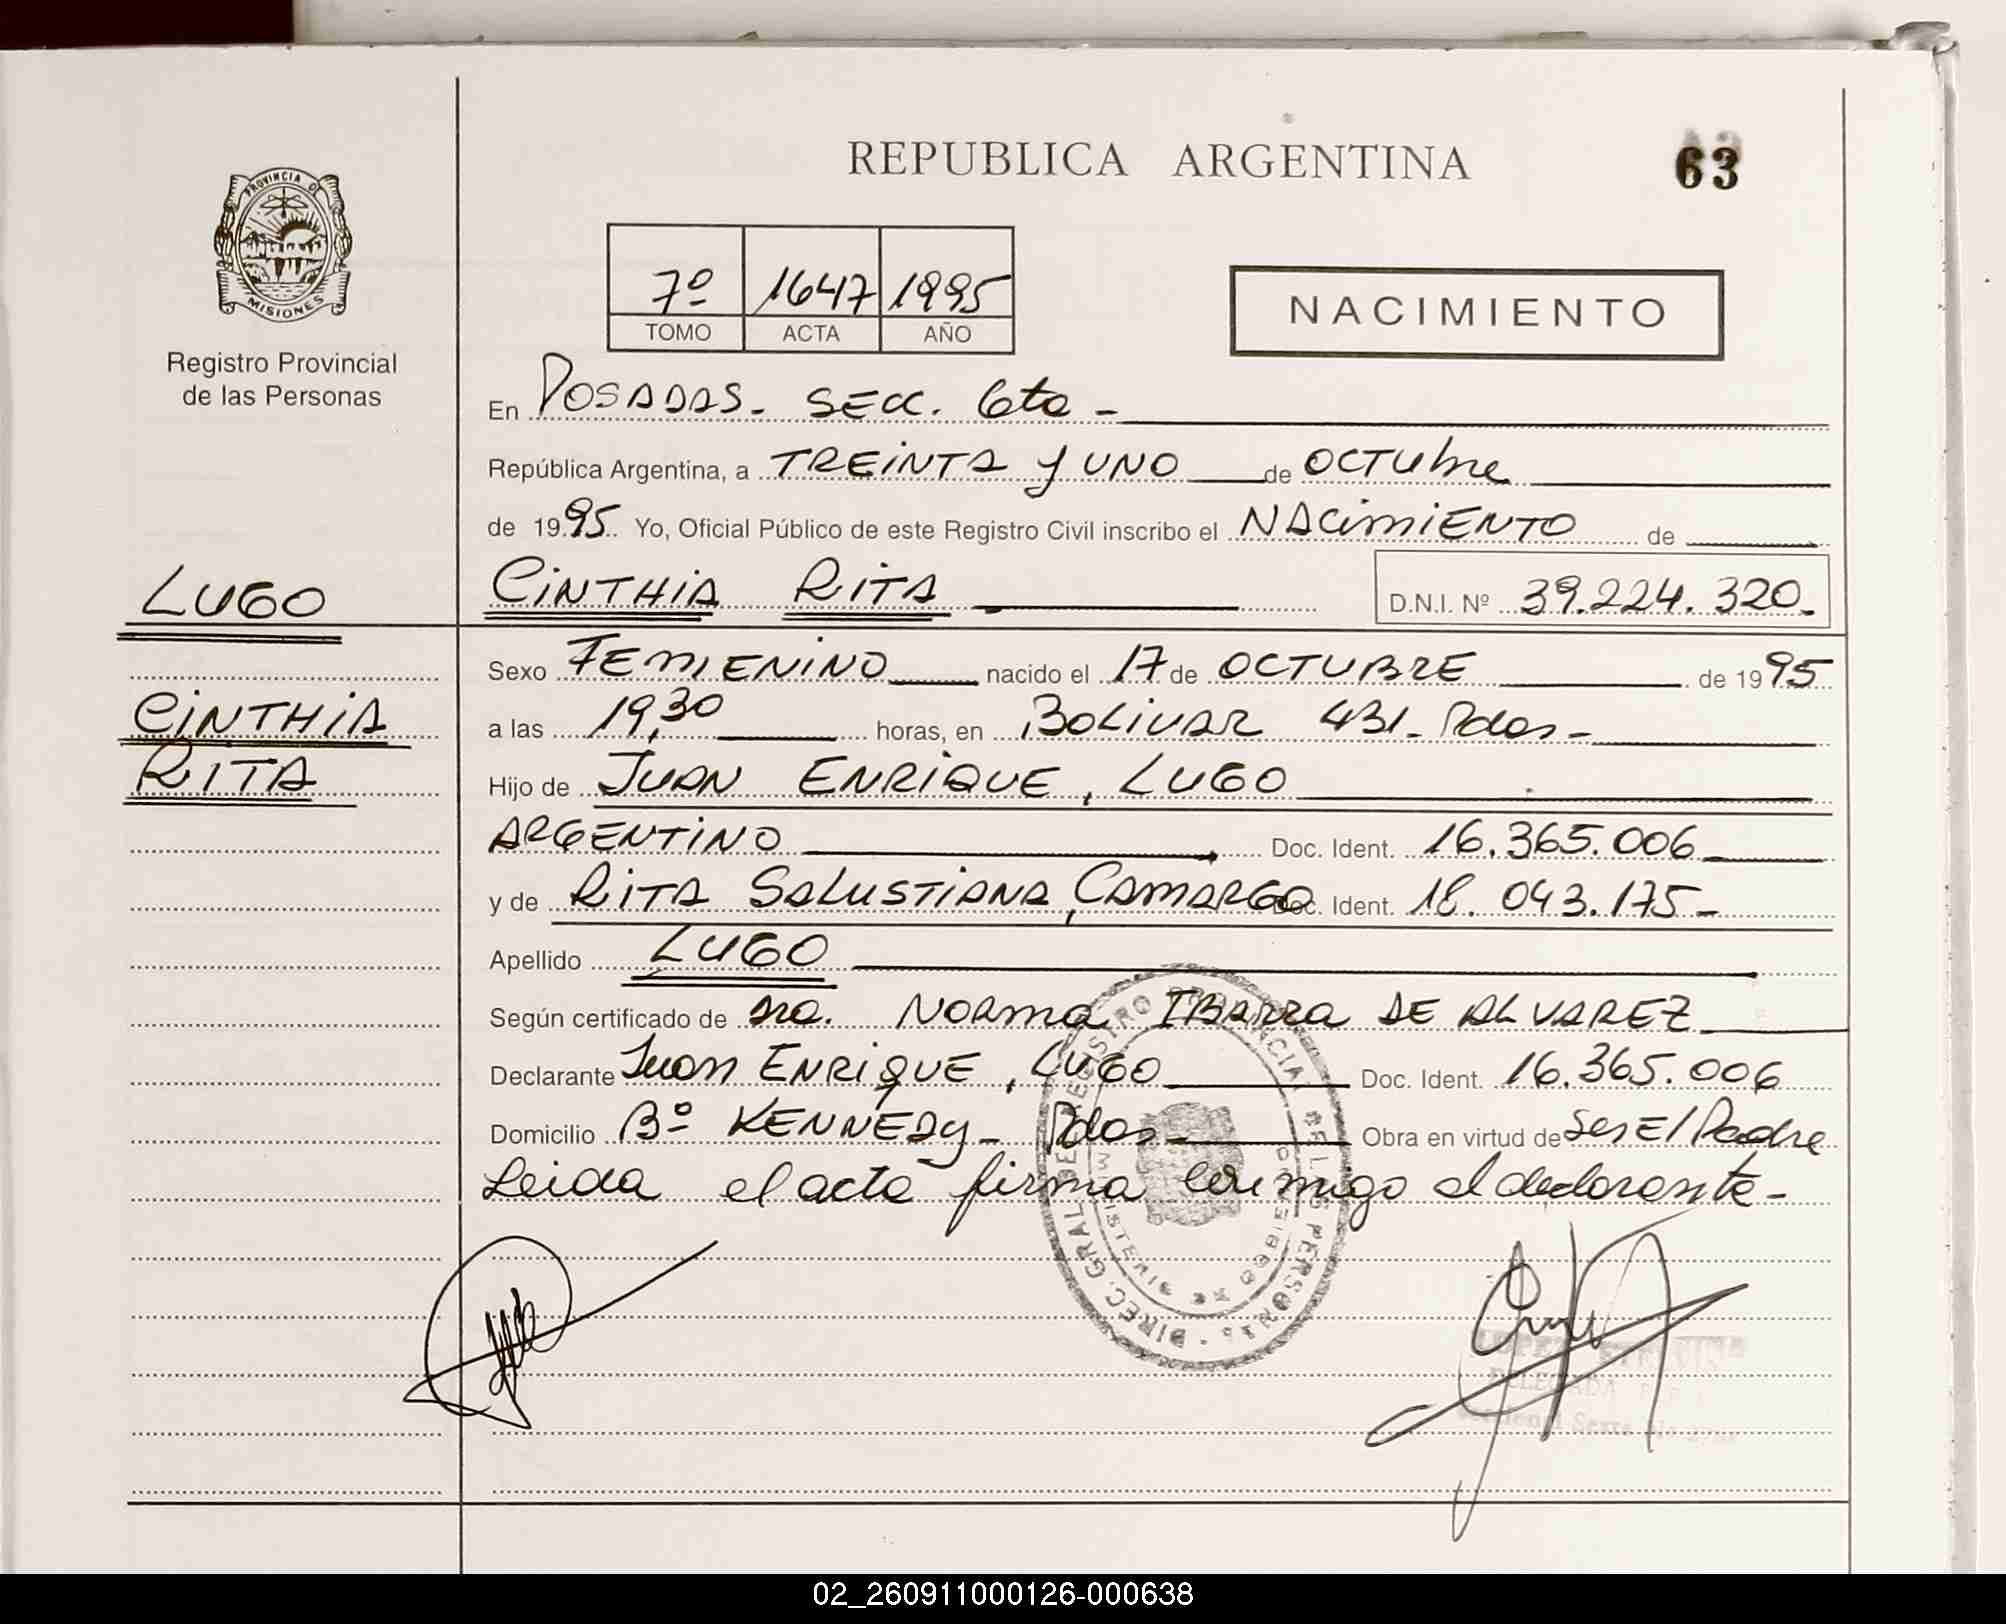 REPUBLICA ARGENTINA
63
PROVINCIA DE
MISIONES
Registro Provincial
de las Personas
7º 1647 1995
TOMO ACTA AÑO
NACIMIENTO
En POSADAS - SECC. 6ta -
República Argentina, a TREINTA y UNO de OCTUbre
de 1995. Yo, Oficial Público de este Registro Civil inscribo el NACIMIENTO de
LUGO
CINTHIA RITA D.N.I. Nº 39.224.320.
Sexo FEMIENINO nacido el 17 de OCTUBRE de 1995
CINTHIA
a las 19,30 horas, en BOLIVAR 431 - Pdas -
RITA
Hijo de JUAN ENRIQUE, LUGO
ARGENTINO Doc. Ident. 16.365.006
y de RITA SALUSTIANA, CAMARGO Doc. Ident. 18.043.175 -
Apellido LUGO
Según certificado de sra. NORMA IBARRA DE ALVAREZ
Declarante Juan ENRIQUE, LUGO Doc. Ident. 16.365.006
Domicilio Bº KENNEDY - Pdas - Obra en virtud de ser El Padre
Leida el acta firma conmigo el declarante -
DIREC. GRAL. DE REGISTRO PROVINCIAL DE LAS PERSONAS
DELEGADA
Seccional Sexta
02_260911000126-000638